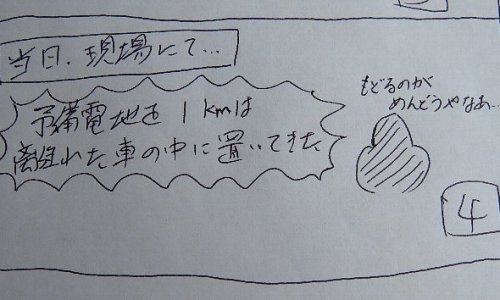 当日、現場にて…
予備電池を1kmは
離れた車の中に置いてきた
もどるのが
めんどうやなあ…
4